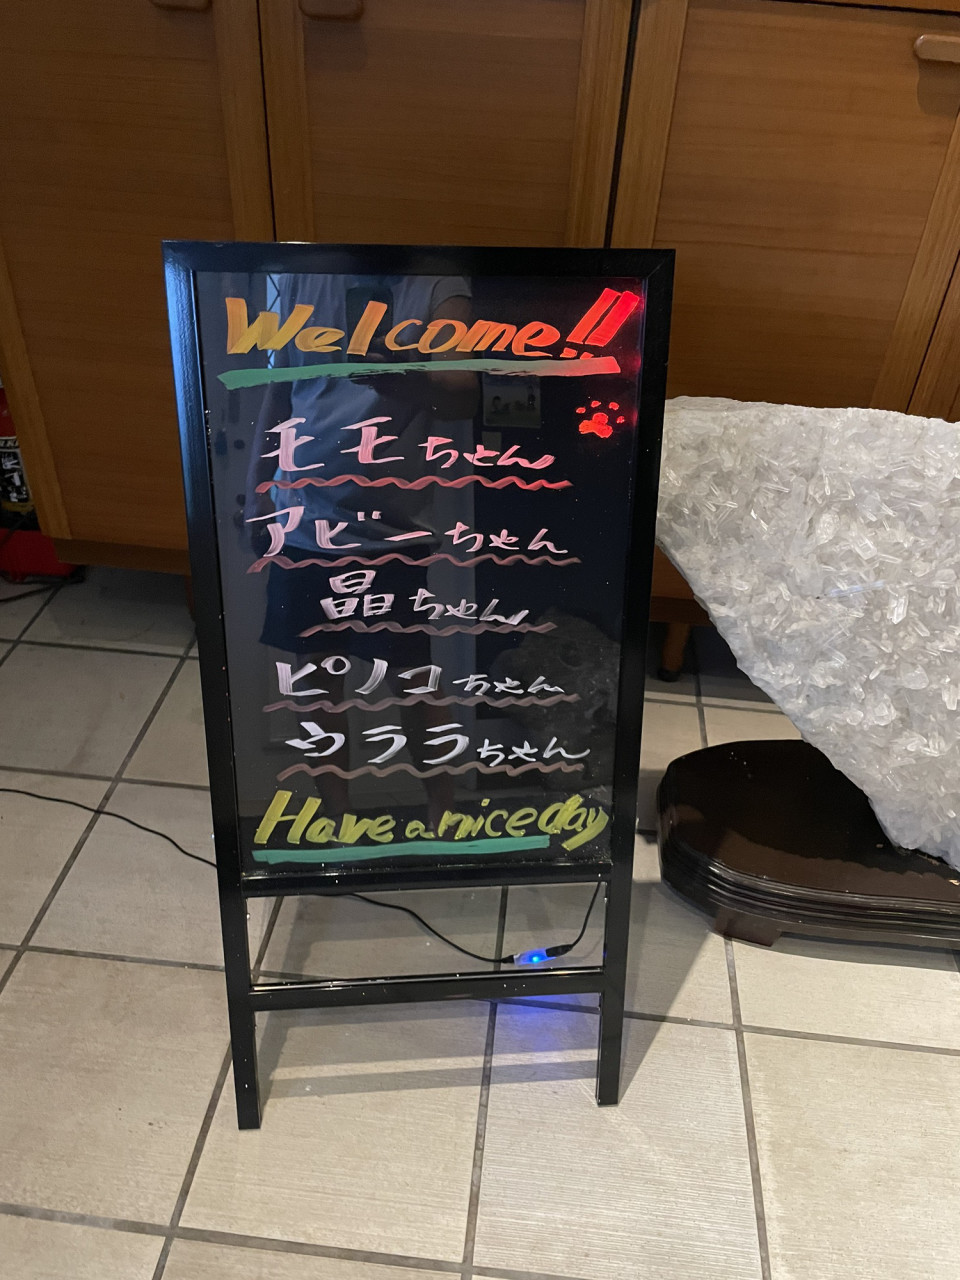 Welcome!!
モモちゃん
アビーちゃん
晶ちゃん
ピノコちゃん
ウララちゃん
Have a nice day